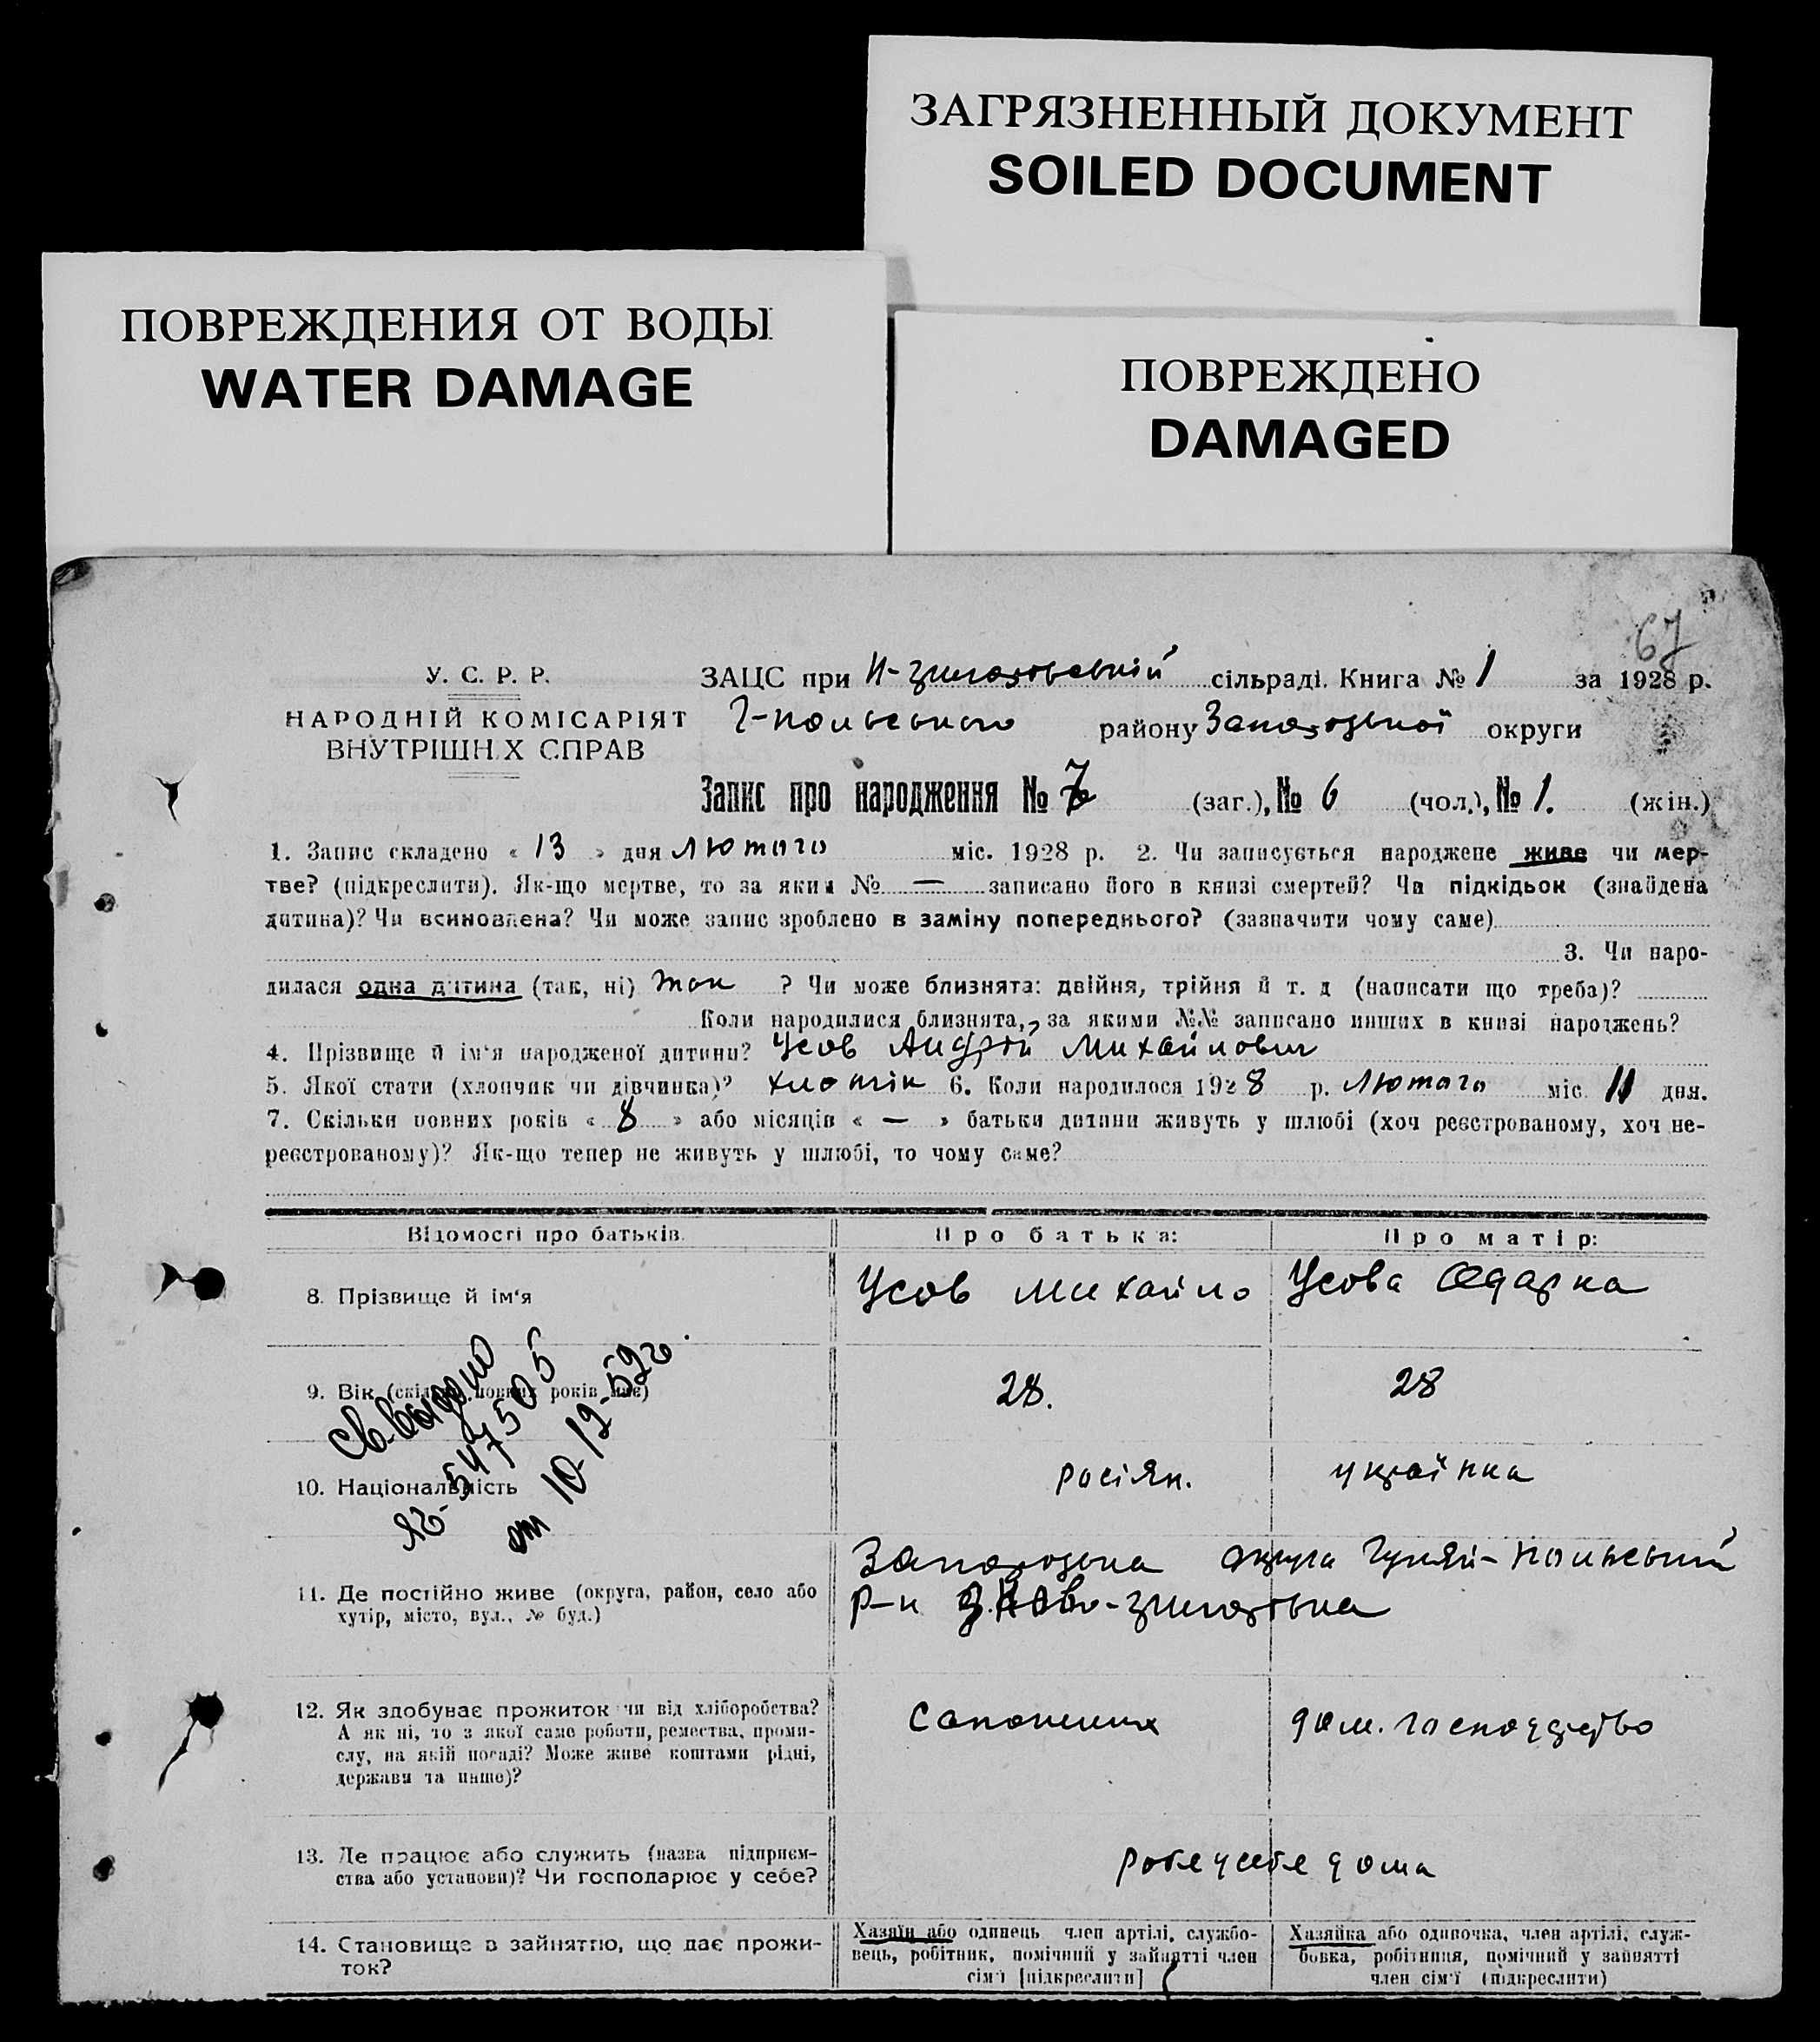 ЗАГРЯЗНЕННЫЙ ДОКУМЕНТ
SOILED DOCUMENT
ПОВРЕЖДЕНИЯ ОТ ВОДЫ
WATER DAMAGE
ПОВРЕЖДЕНО
DAMAGED
67
У. С. Р. Р.
НАРОДНІЙ КОМІСАРІЯТ
ВНУТРІШН.Х СПРАВ
ЗАЦС при сільраді. Книга № 1 за 1928 р.
Г-польського району Запорозької округи
Запис про народження № 7 (заг.), № 6 (чол.), № 1. (жін.)
1. Запис складено « 13 » дня лютого міс. 1928 р. 2. Чи записується народжене живе чи мер-
тве? (підкреслити). Як-що мертве, то за яким № — записано його в книзі смертей? Чи підкідьок (знайдена
дитина)? Чи всиновлена? Чи може запис зроблено в заміну попереднього? (зазначити чому саме)
3. Чи наро-
дилася одна дитина (так, ні) так ? Чи може близнята: двійня, трійня й т. д (написати що треба)?
Коли народилися близнята, за якими №№ записано инших в книзі народжень?
4. Прізвище й ім‘я народженої дитини? Усов Андрій Михайлович
5. Якої стати (хлопчик чи дівчинка)? 6. Коли народилося 1928 р. Лютого міс. 11 дня.
7. Скільки повних років « 8 » або місяців « — » батьки дитини живуть у шлюбі (хоч реєстрованому, хоч не-
реєстрованому)? Як-що тепер не живуть у шлюбі, то чому саме?
Відомості про батьків. Про батька: Про матір:
8. Прізвище й ім‘я Усов Михайло Усова Одарка
9. Вік (скільки повних років має) 28. 28
10. Національність росіян. українка
св-во
от 10-12-52г
11. Де постійно живе (округа, район, село або
хутір, місто, вул., № буд.)
Запорозька округа Гуляй-Польський
р-н
12. Як здобуває прожиток чи від хліборобства?
А як ні, то з якої саме роботи, ремества, проми-
слу, на якій посаді? Може живе коштами рідні,
держави та инше)?
дом. господарство
13. Де працює або служить (назва підприєм-
ства або установи)? Чи господарює у себе?
робе у себе дома
14. Становище в зайняттю, що дає прожи-
ток?
Хазяїн або одинець член артілі, службо-
вець, робітник, помічний у зайнятті член
сім‘ї [підкреслити]
Хазяйка або одиночка, член артілі, служ-
бовка, робітниця, помічний у зайнятті
член сім‘ї (підкреслити)